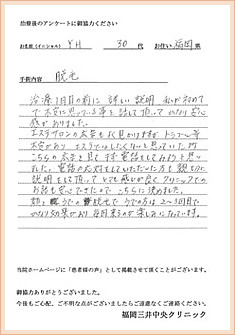 治療後のアンケートに御協力ください
お名前（イニシャル） YH 30代 お住い 福岡県
手術内容 脱毛
治療1日目の前に詳しい説明 私が初めて
で不安に思っている事を話して頂いてかなり安心
感がありました。
エステサロンの広告もよく見かけますが トラブル等
不安があり エステではしたくないと思っていた時
こちらの広告を見て、電話をしてみようと思い
ました。電話の応対をしていただいた方も親切に
説明をして頂いてとても感じが良くクリニックでの
お話も安心できたのでこちらに決めました。
脱毛 うでの方は2～3回目で
かなり効果があり 毎回来るのが楽しみになっています。
当院ホームページに「患者様の声」として掲載させて頂くことがございます。
御協力ありがとうございました。
今後もご心配、ご不明な点がございましたらご遠慮なくご連絡ください。
福岡三井中央クリニック